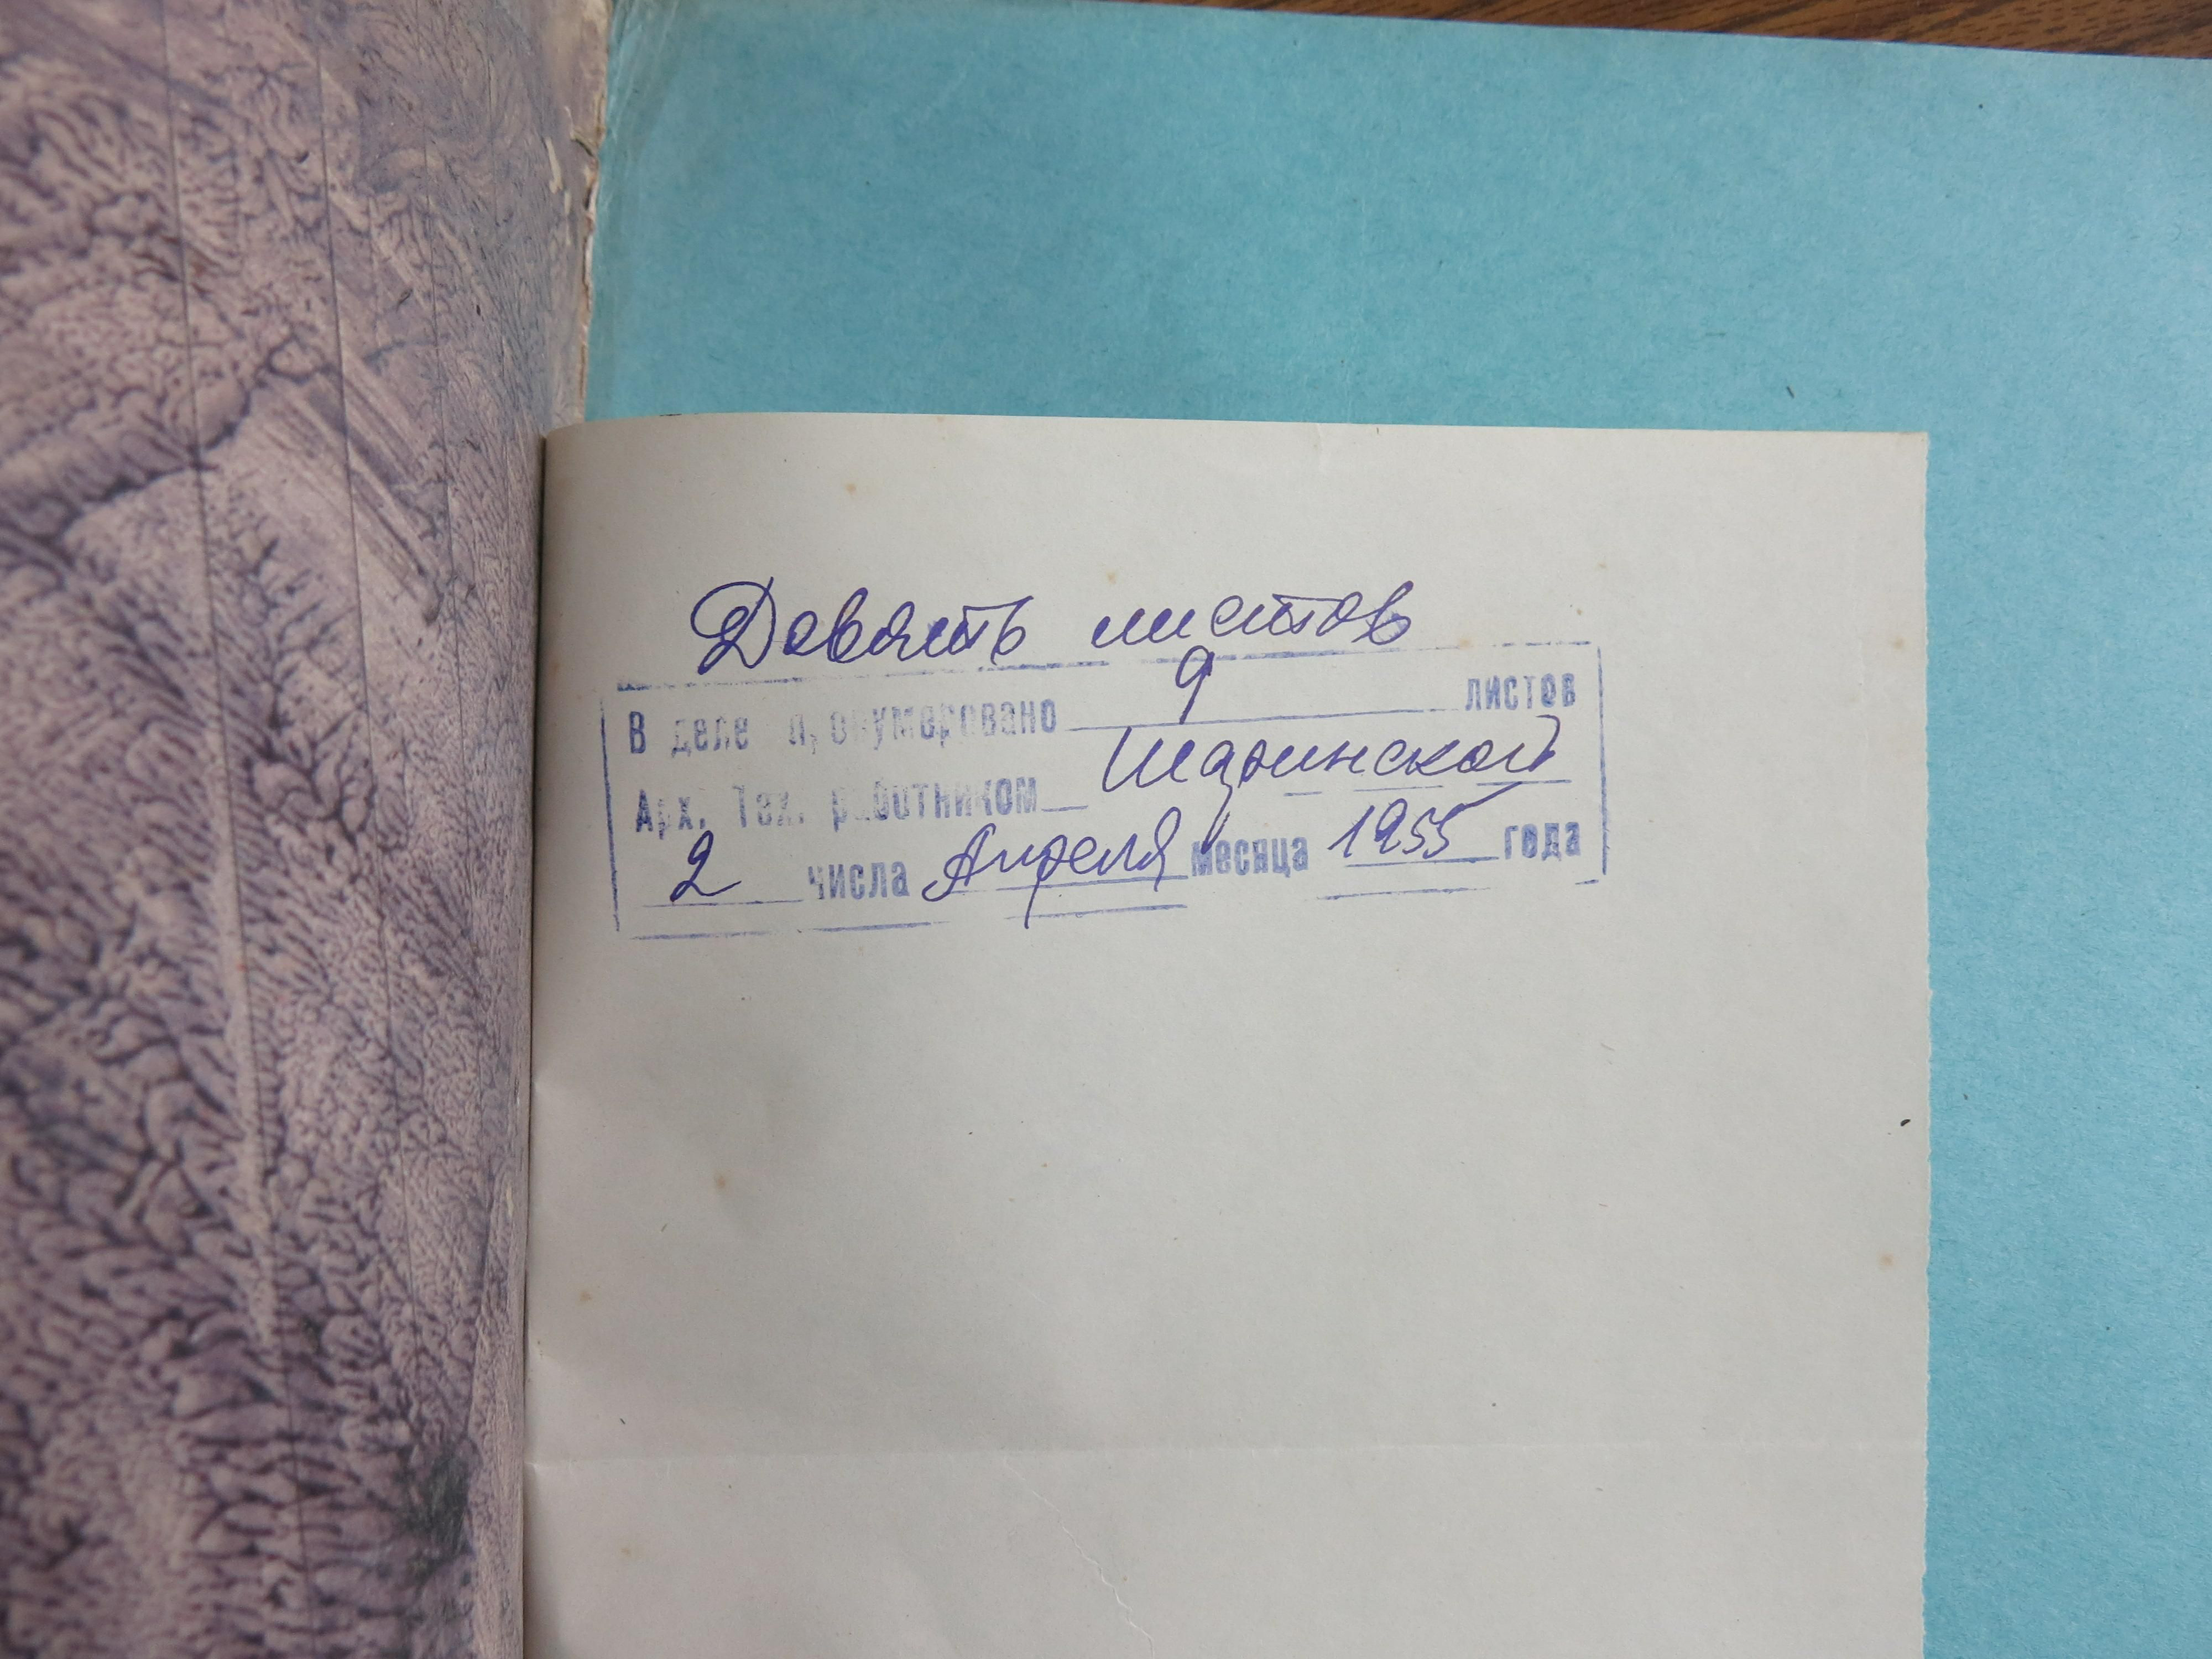 Девять листов
В деле пронумеровано 9 листов
Арх. Тех. работником
2 числа Апреля месяца 1955 года